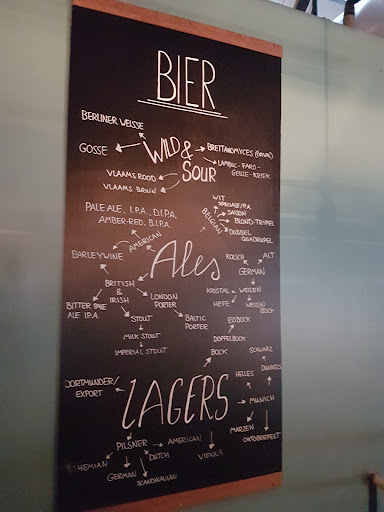 BIER
BERLINER WEISSE
GOSSE
WILD &
SOUR
BRETTANOMYCES (ORVAL)
LAMBIC - FARO -
GEUZE - KRIEK
VLAAMS ROOD
VLAAMS BRUIN
PALE ALE, I.P.A., D.I.P.A,
AMBER-RED, B.I.P.A.
AMERICAN
BARLEYWINE
WIT
SPECIALE/P.A.
SAISON
BLOND-TRIPEL
DUBBEL
QUADRUPEL
BELGIAN
Ales
KOLSCH
ALT
GERMAN
KRISTAL
WEIZEN
HEFE
WEIZEN
BOCK
BRITISH
&
IRISH
BITTER PALE
ALE I.P.A.
LONDON
PORTER
BALTIC
PORTER
STOUT
MILK STOUT
IMPERIAL STOUT
EISBOCK
DOPPELBOCK
BOCK
SCHWARZ
DUNKELS
HELLES
MUNICH
MARZEN
OKTOBERFEST
DORTMUNDER/
EXPORT
LAGERS
PILSNER
AMERICAN
VIENNA
DUTCH
HEMIAN
GERMAN
SCANDINAVIAN